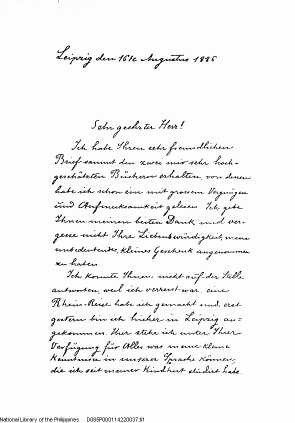 Leipzig den 16te Augustus 1886
Sehr geehrter Herr!
Ich habe Ihren sehr freundlichen
Brief sammt den zwei mir sehr hoch-
geschätzten Büchern erhalten von denen
habe ich schon eine mit grossem Vergnügen
und Aufmerksamkeit gelesen. Ich gebe
Ihnen meinen besten Dank und ver-
gesse nicht Ihre Liebenswürdigkeit, mein
unbedeutendes, kleines Geschenk angenommen
zu haben.
Ich konnte Ihnen nicht auf der Stelle
antworten, weil ich verreist war: eine
Rhein-Reise habe ich gemacht und erst
gestern bin ich hieher in Leipzig an-
gekommen. Hier stehe ich unter Ihrer
Verfügung für Alles was meine kleine
Kenntnisse in unserer Sprache können,
die ich seit meiner Kindheit studiert habe.
National Library of the Philippines